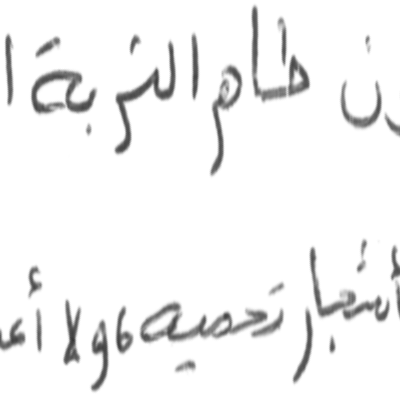 ون ظام التربة ا
أشجار تحميه ولا أعـ